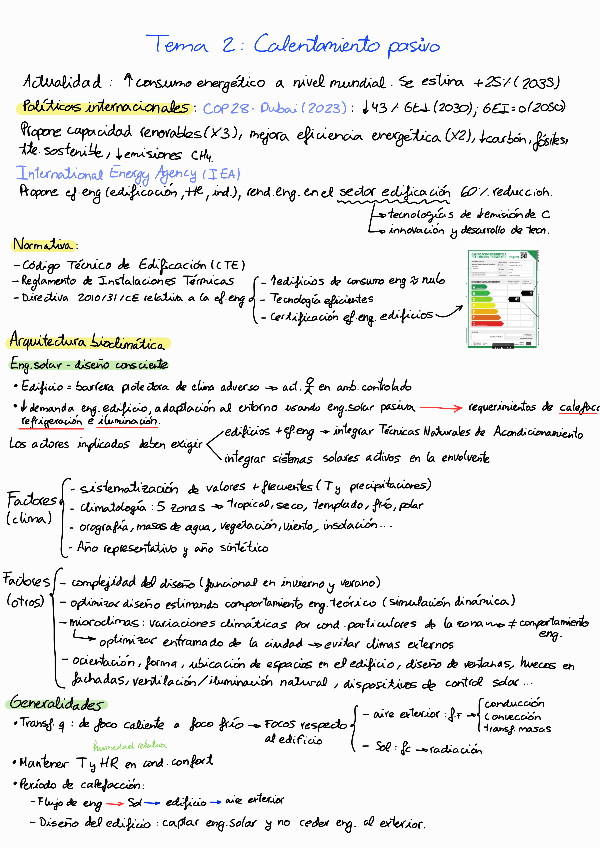 Tema 2: Calentamiento pasivo
Actualidad: ↑consumo energético a nivel mundial. Se estima +25% (2035)
Políticas internacionales: COP28·Dubai (2023): ↓43% GEI (2030); GEI=0 (2050)
Propone capacidad renovables (x3), mejora eficiencia energética (x2), ↓carbón, fósiles,
tte. sostenible, ↓emisiones CH4.
International Energy Agency (IEA)
Propone ef eng (edificación, tte, ind.), rend. eng. en el sector edificación 60% reducción.
→tecnologías de ↓emisión de C
→innovación y desarrollo de tecn.
Normativa:
- Código Técnico de Edificación (CTE)
- Reglamento de Instalaciones Térmicas
- Directiva 2010/31/CE relativa a la ef. eng
- ↑edificios de consumo eng ≈ nulo
- Tecnología eficientes
- Certificación ef. eng. edificios
Arquitectura bioclimática
Eng. solar - diseño consciente
• Edificio = barrera protectora de clima adverso → act. en amb. controlado
• ↓demanda eng. edificio, adaptación al entorno usando eng. solar pasiva → requerimientos de calefac
refrigeración e iluminación.
Los actores implicados deben exigir
edificios + ef eng → integrar Técnicas Naturales de Acondicionamiento
integrar sistemas solares activos en la envolvente
Factores (clima)
- sistematización de valores + frecuentes (T y precipitaciones)
- climatología: 5 zonas → tropical, seco, templado, frío, polar
- orografía, masas de agua, vegetación, viento, insolación...
- Año representativo y año sintético
Factores (otros)
- complejidad del diseño (funcional en invierno y verano)
- optimizar diseño estimando comportamiento eng. teórico (simulación dinámica)
- microclimas: variaciones climáticas por cond. particulares de la zona → ≠ comportamiento eng.
→ optimizar entramado de la ciudad → evitar climas externos
- orientación, forma, ubicación de espacios en el edificio, diseño de ventanas, huecos en
fachadas, ventilación/iluminación natural, dispositivos de control solar...
Generalidades
• Transf. q: de foco caliente a foco frío → Focos respecto al edificio
- aire exterior: fF
conducción
convección
transf. masas
- Sol: fc → radiación
humedad relativa
• Mantener T y HR en cond. confort
• Período de calefacción:
- Flujo de eng → Sol → edificio → aire exterior
- Diseño del edificio: captar eng. solar y no ceder eng. al exterior.